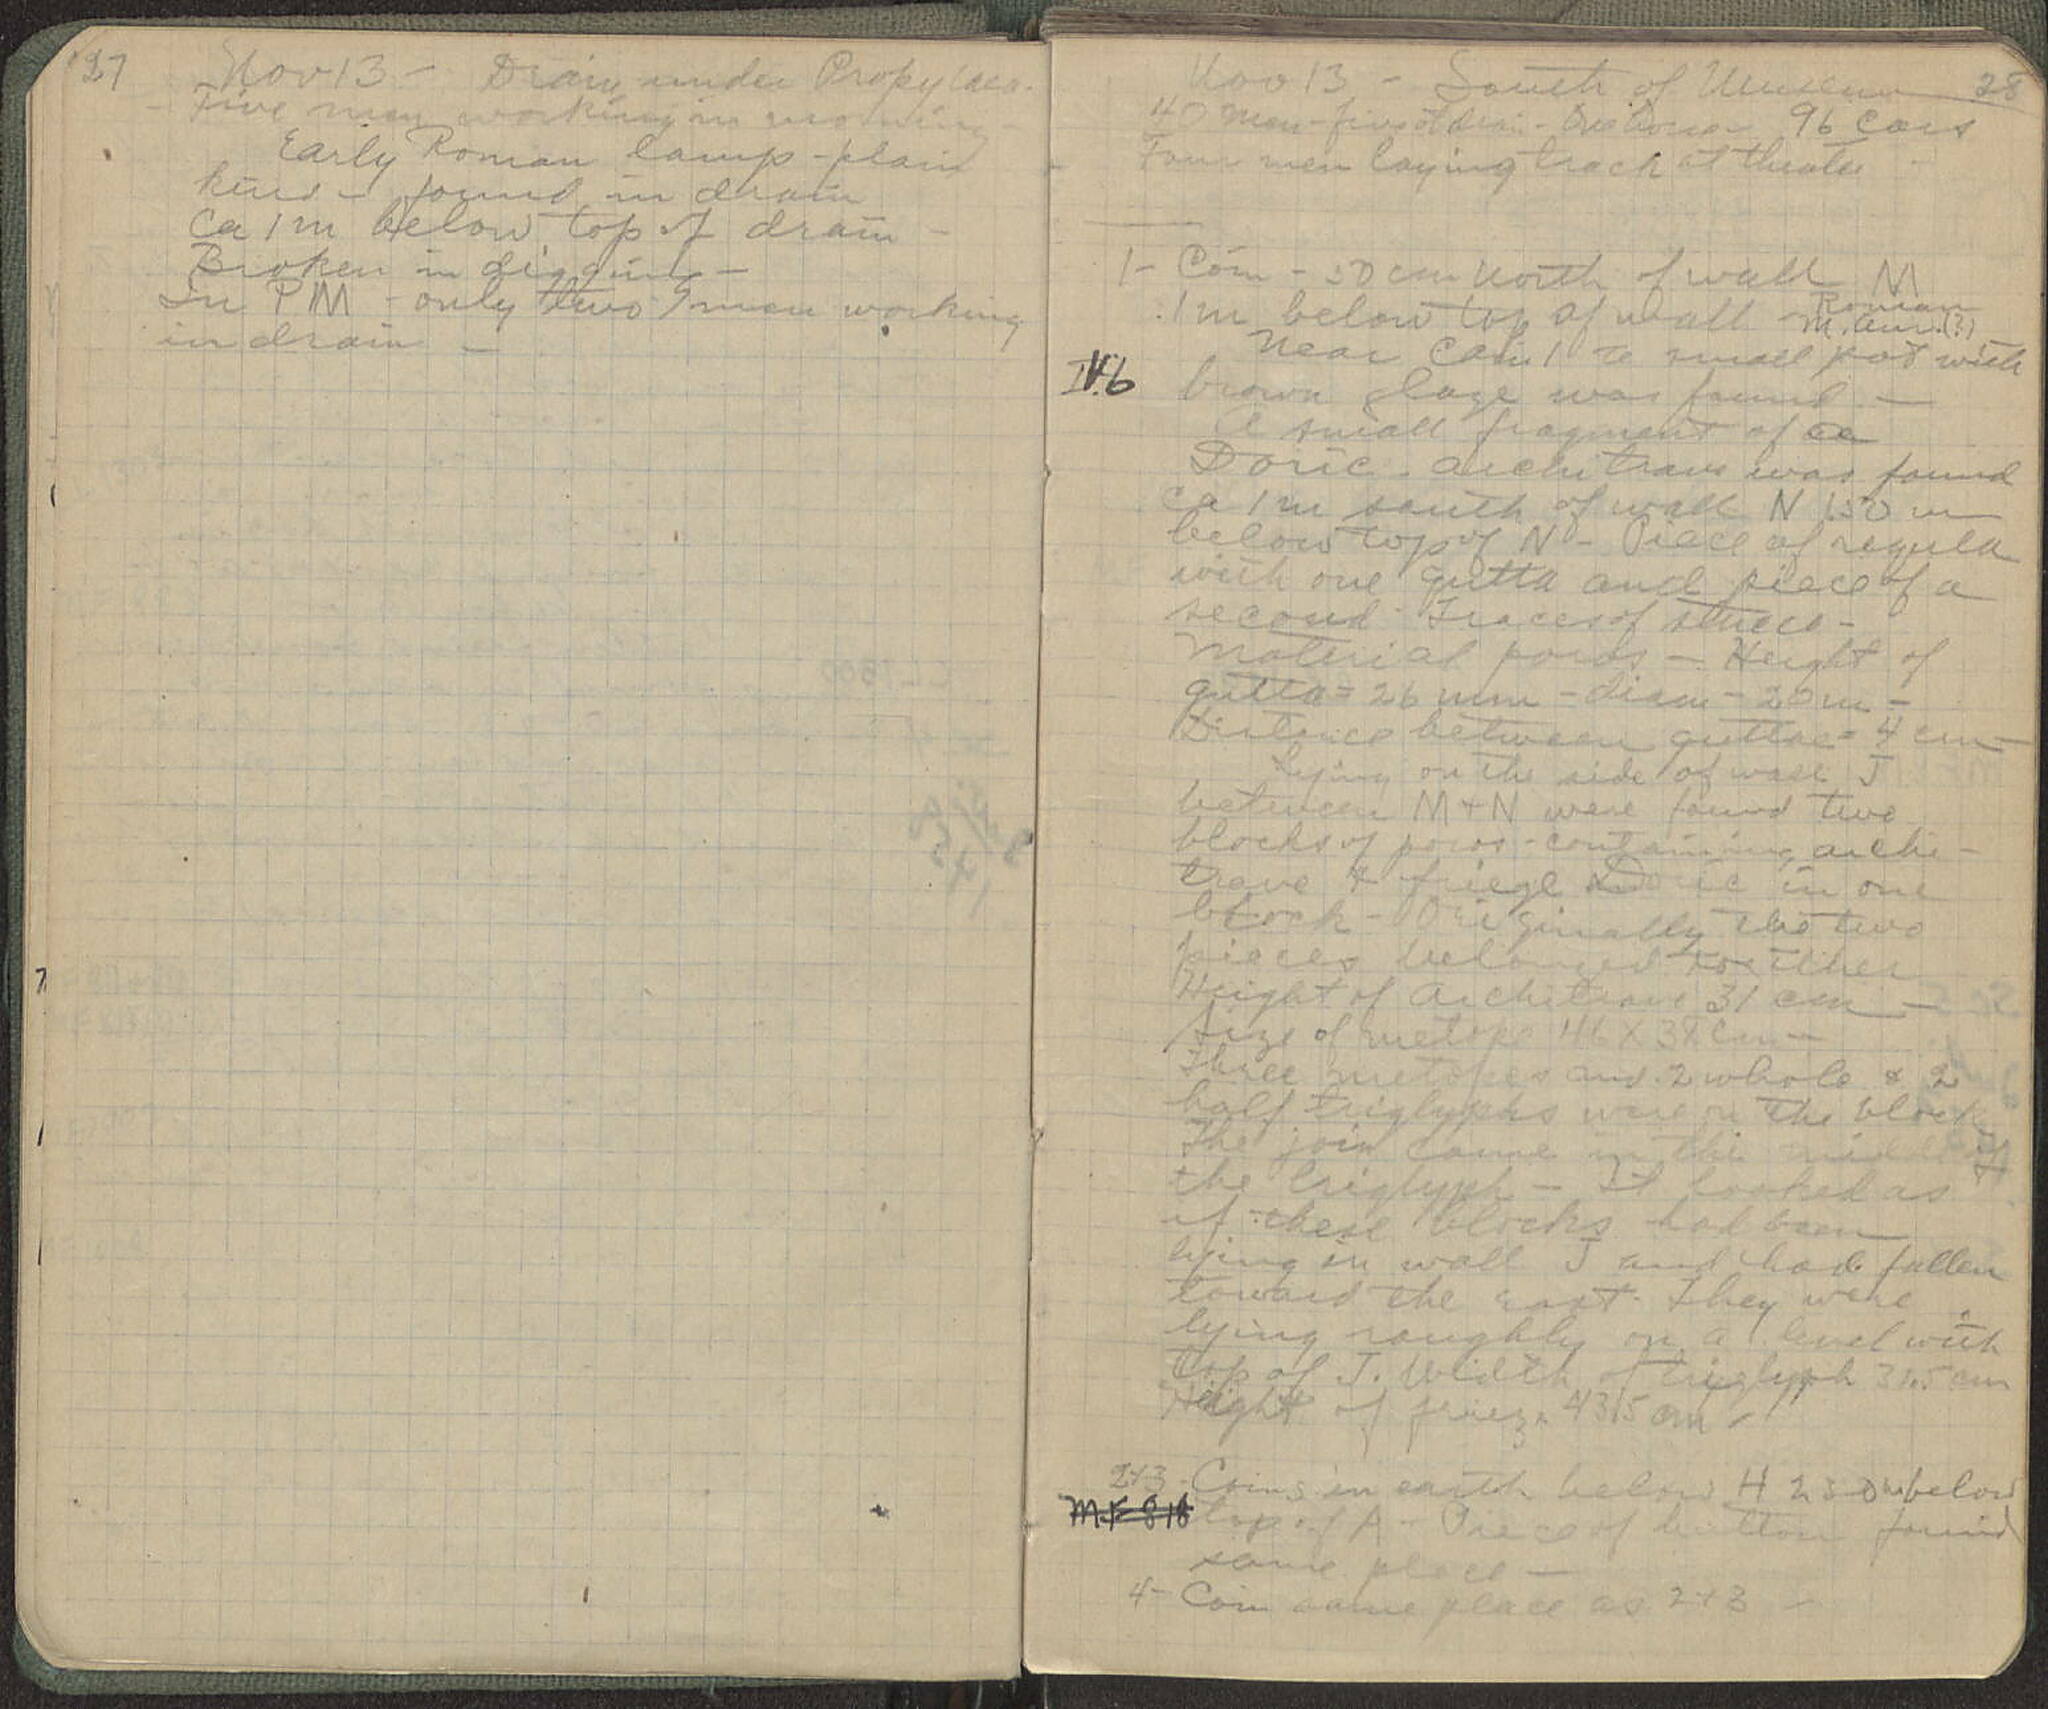 27
Nov 13 - Drain under Propylaea.
- Five men working in morning -
Early Roman lamp - plain
kind - found in drain
Ca 1m below top of drain -
Broken in digging -
In PM - only two men working
in drain -
Nov 13 - South of Museum 28
40 Men - five at drain - One Horse - 96 Cars
Four men laying track at theatre -
1- Coin - 50 cm North of wall M
1m below top of wall - Roman
M. Aur. (?)
Near Coin 1 a small pot with
IV.6 brown glaze was found -
A small fragment of a
Doric architrave was found
ca 1m south of wall N 1.50 m
below top of N - Piece of regula
with one gutta and piece of a
second - Traces of stucco -
Material poros - Height of
gutta = 26 mm - diam - 20 m -
Distance between guttae = 4 cm -
Lying on the side of wall J
between M + N were found two
blocks of poros - containing archi-
trave & frieze Doric in one
block - Originally the two
pieces belonged together
Height of Architrave 31 cm -
Size of metope 46 X 38 cm -
Three metopes and 2 whole & 2
half triglyphs were on the block
The join came in the middle of
the triglyph - It looked as
if these blocks had been
lying in wall J and had fallen
toward the east. They were
lying roughly on a level with
top of J. Width of triglyph 31.5 cm
Height of frieze 43.5 cm -
2+3 - Coins in earth below H 2.50 m below
M.F 818 top of A - Piece of button found
same place -
4- Coin same place as 2+3 -